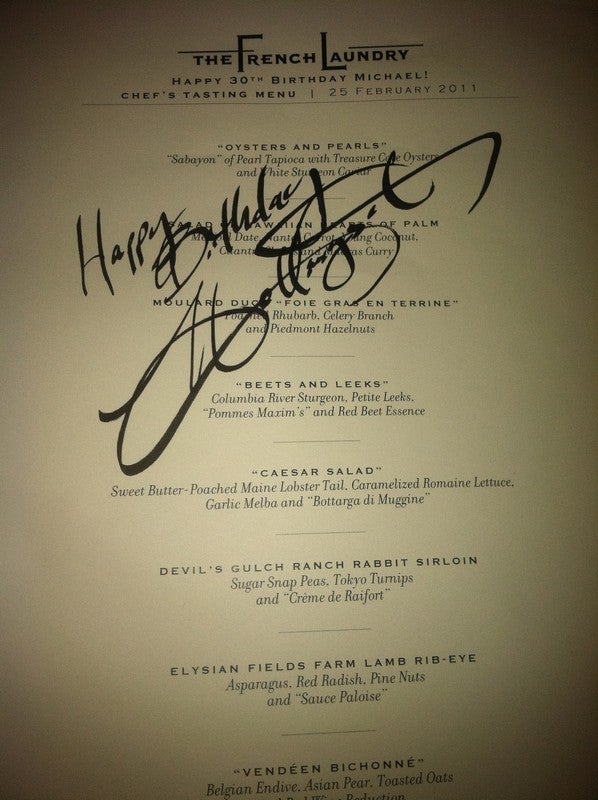 THE FRENCH LAUNDRY
HAPPY 30TH BIRTHDAY MICHAEL!
CHEF'S TASTING MENU | 25 FEBRUARY 2011
"OYSTERS AND PEARLS"
"Sabayon" of Pearl Tapioca with Treasure Cove Oysters
and White Sturgeon Caviar
Happy Birthday
SALAD OF HAWAIIAN HEARTS OF PALM
Date, Carrot, Young Coconut,
and Madras Curry
MOULARD DUCK "FOIE GRAS EN TERRINE"
Poached Rhubarb, Celery Branch
and Piedmont Hazelnuts
"BEETS AND LEEKS"
Columbia River Sturgeon, Petite Leeks,
"Pommes Maxim's" and Red Beet Essence
"CAESAR SALAD"
Sweet Butter-Poached Maine Lobster Tail, Caramelized Romaine Lettuce,
Garlic Melba and "Bottarga di Muggine"
DEVIL'S GULCH RANCH RABBIT SIRLOIN
Sugar Snap Peas, Tokyo Turnips
and "Crème de Raifort"
ELYSIAN FIELDS FARM LAMB RIB-EYE
Asparagus, Red Radish, Pine Nuts
and "Sauce Paloise"
"VENDÉEN BICHONNÉ"
Belgian Endive, Asian Pear, Toasted Oats
and Red Wine Reduction